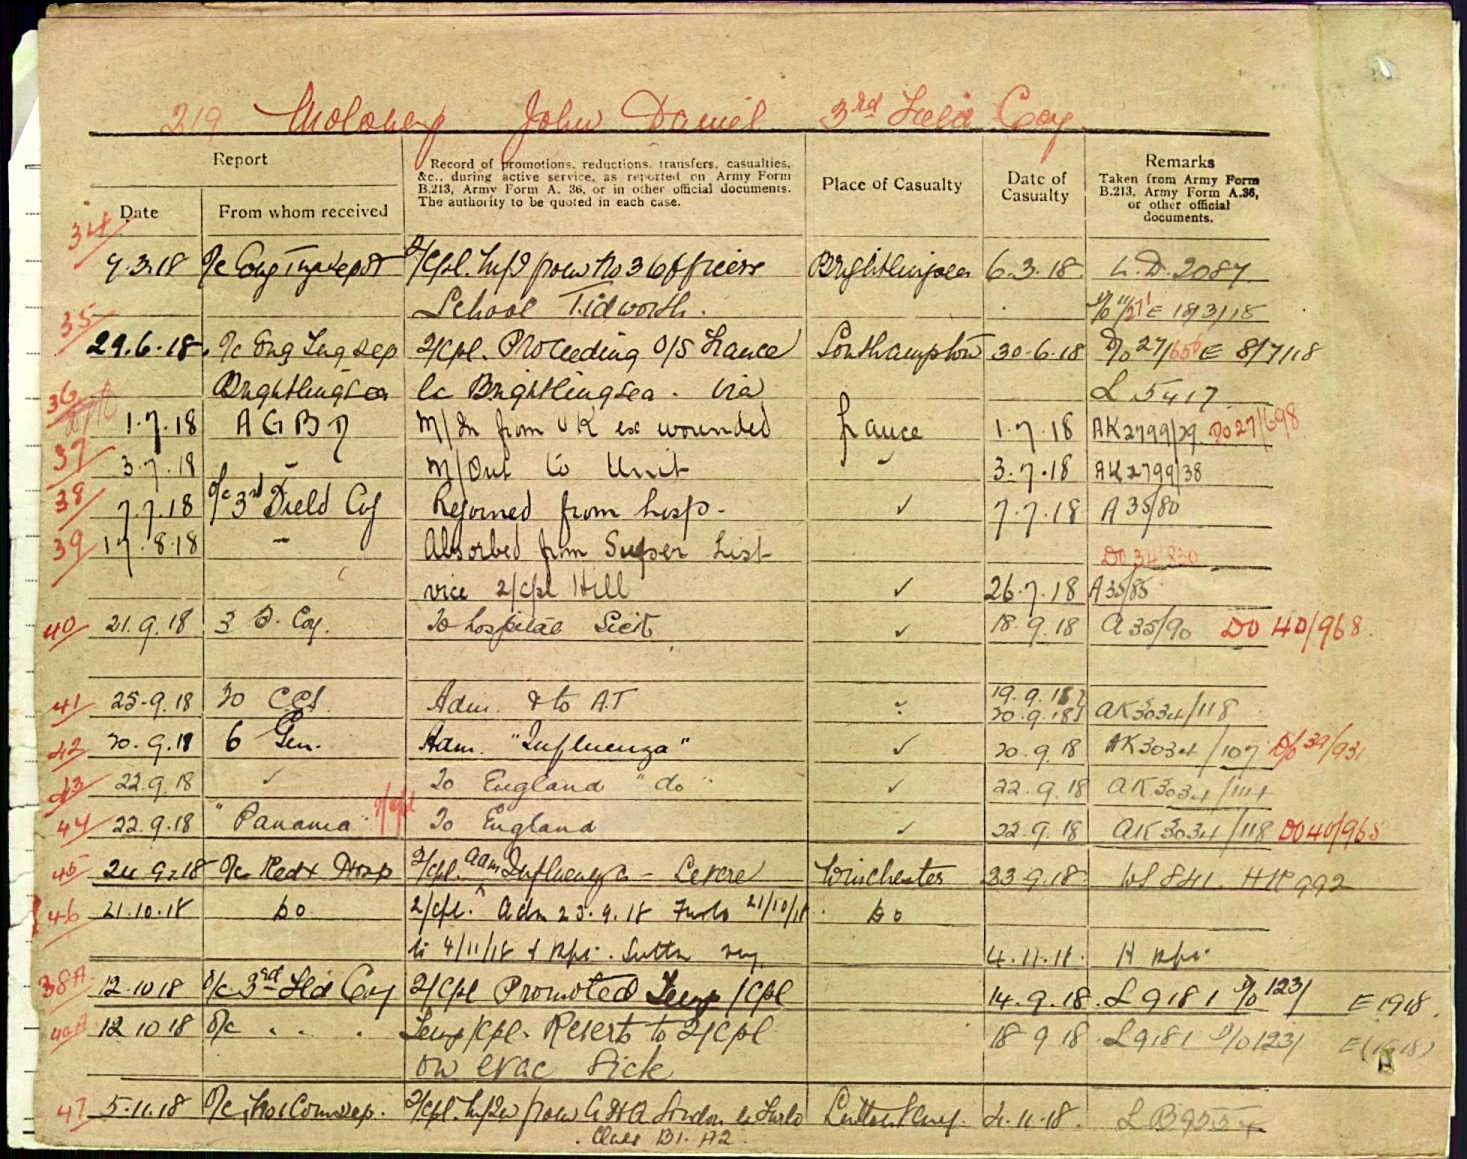 219 Moloney John Daniel 3rd Field Coy
Report
Record of promotions, reductions, transfers, casualties,
&c., during active service, as reported on Army Form
B.213, Army Form A. 36, or in other official documents.
The authority to be quoted in each case.
Place of Casualty
Date of
Casualty
Remarks
Taken from Army Form
B.213, Army Form A.36,
or other official
documents.
Date
From whom received
34 9.3.18 O/c Eng Trg depot 2/Cpl. from No 3 Officers Brightlingsea 6.3.18 L.D. 2087
School Tidworth. E 18/3/18
35 29.6.18. O/c Eng Trg dep 2/Cpl. Proceeding O/S France Southampton 30.6.18 D/o 27/656 E 8/7/18
Brightlingsea Ex Brightlingsea. Via L 5417
36 1.7.18 A G B D M/In from UK ex wounded France 1.7.18 AK2799/29. DO 27/698
37 3.7.18 " M/Out to Unit " 3.7.18 AK2799/38
38 7.7.18 O/c 3rd Field Coy Rejoined from hosp. ✓ 7.7.18 A 35/80
39 17.8.18 " Absorbed from Super List DO 34/830
vice 2/Cpl Hill ✓ 26.7.18 A35/85
40 21.9.18 3 F. Coy. To hospital Sick ✓ 18.9.18 A 35/90 DO 40/968.
41 25.9.18 20 CCS Adm. & to A.T " 19.9.18
20.9.18 AK3034/118
42 20.9.18 6 Gen. Adm. "Influenza" ✓ 20.9.18 AK3034/107 D/o 39/931
43 22.9.18 ✓ To England "do" ✓ 22.9.18 AK3034/114
44 22.9.18 "Panama" 2/Cpl To England ✓ 22.9.18 AK3034/118 DO 40/965
45 24.9.18 O/c Red X Hosp 2/Cpl. Adm Influenza - Severe Winchester 23.9.18 WS 841. HR 992
46 21.10.18 Do 2/Cpl. Adm 23.9.18 Furlo 21/10/18 Do
to 4/11/18 & rpt. Sutton Veny. 4.11.18. H rpt.
38A 12.10.18 O/c 3rd Fld Coy 2/Cpl Promoted Temp/Cpl 14.9.18. L9181 D/o 1231 E 1918.
40A 12 10 18 O/c " " Temp/Cpl. Reverts to 2/Cpl 18 9 18. L9181 D/o 1231 E (1918)
on evac Sick
47 5.11.18 O/c, No 1 Com dep. 2/Cpl. from A.H.Q London ex Furlo Sutton Veny. 4.11.18.
Class B1. A2.